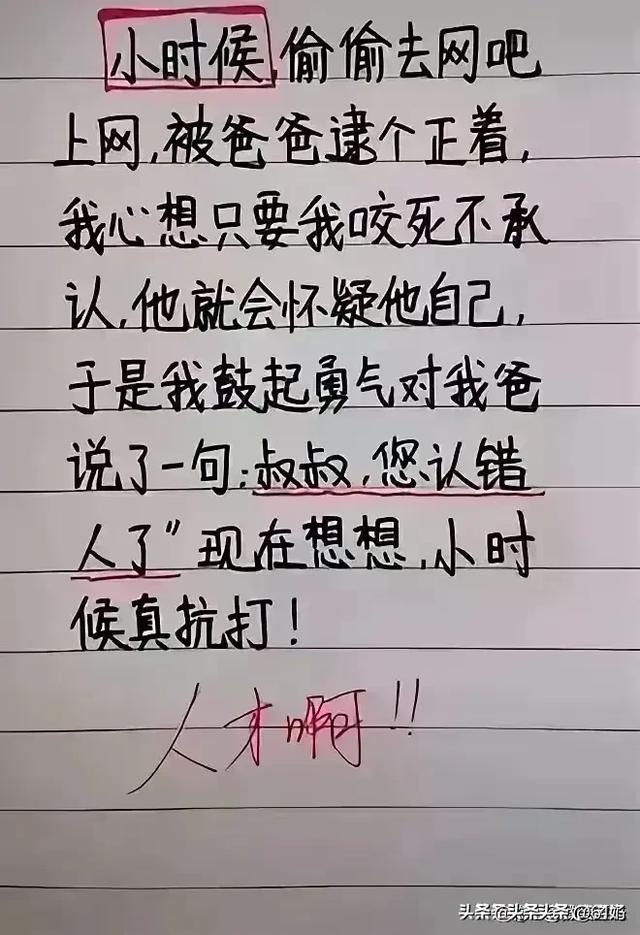 小时候,偷偷去网吧
上网,被爸爸逮个正着,
我心想只要我咬死不承
认,他就会怀疑他自己,
于是我鼓起勇气对我爸
说了一句:叔叔,您认错
人了”现在想想,小时
候真抗打!
人才啊!!
头条 头条 头条